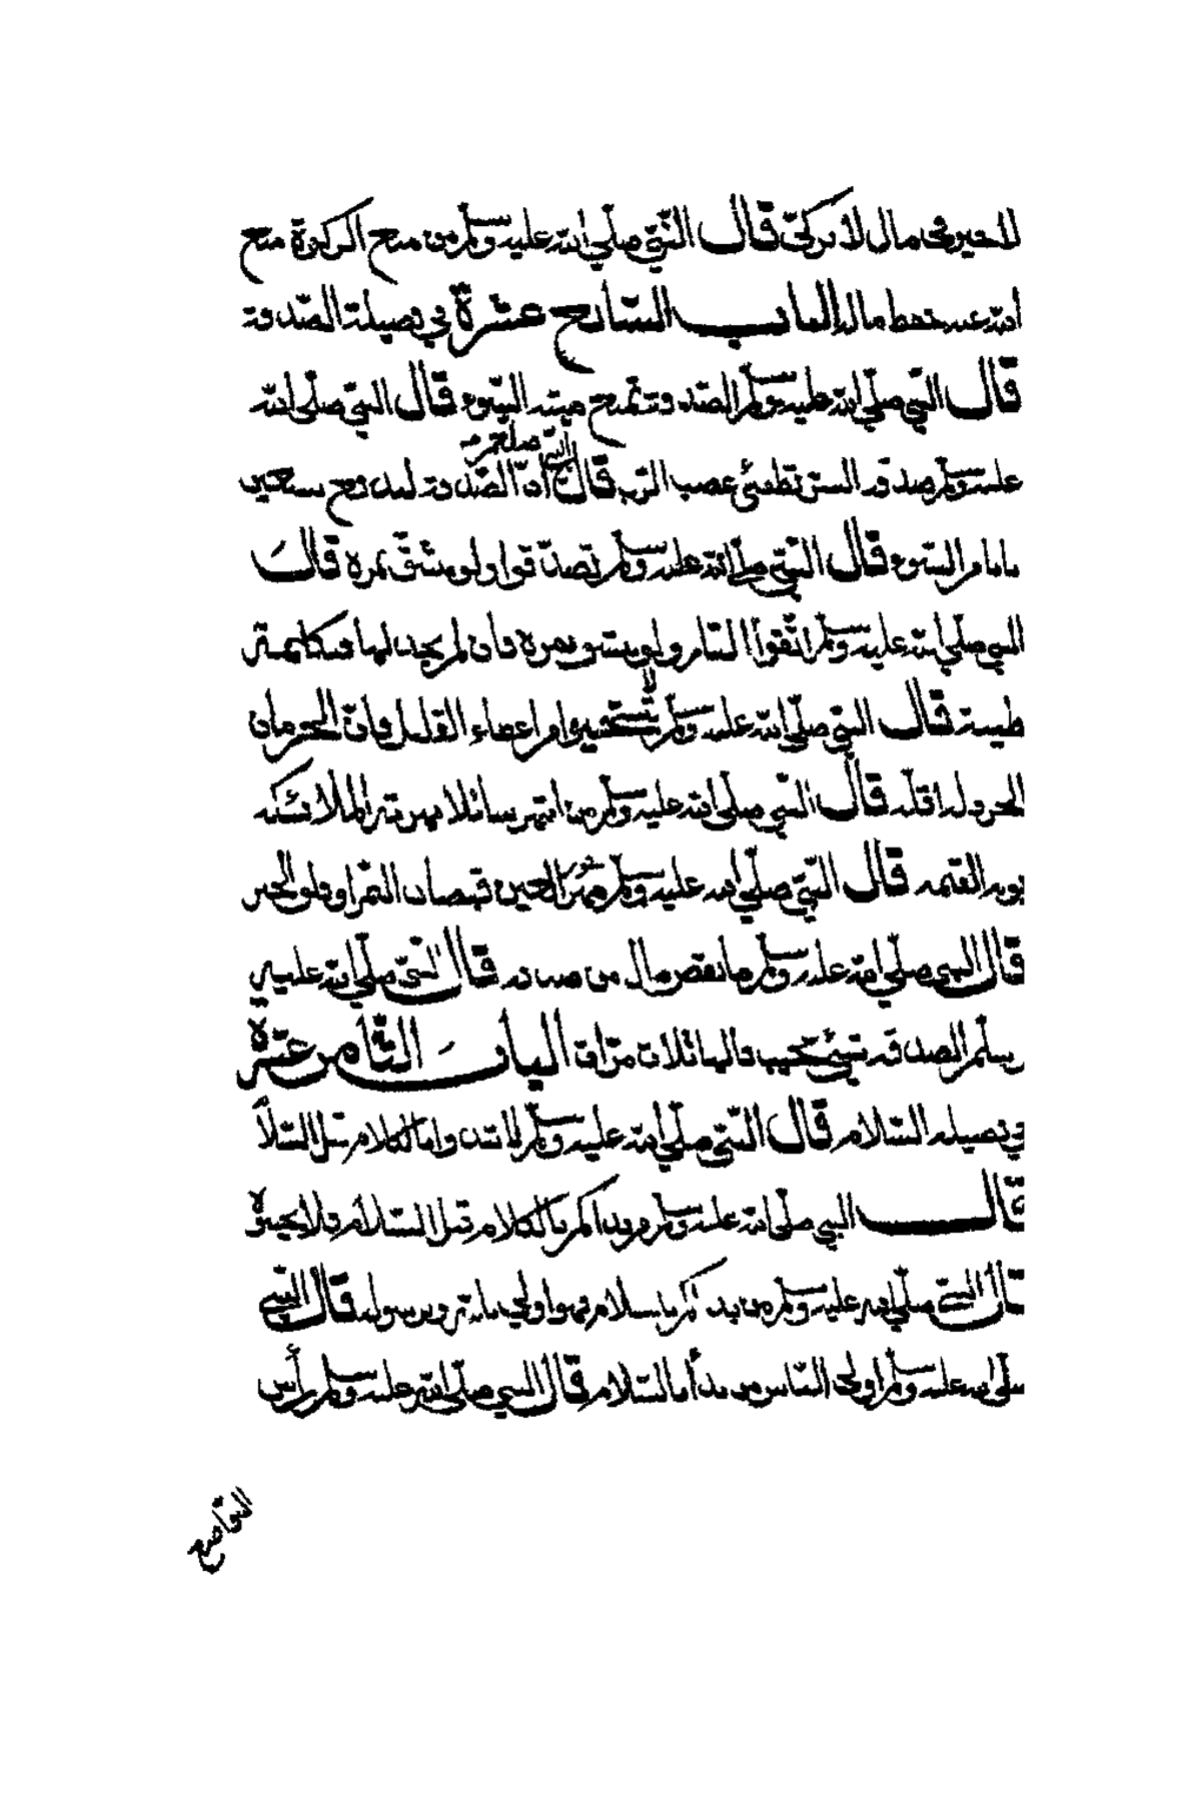 لا خير في مال لا يزكى قال النبي صلى الله عليه وسلم من منع الزكوة منع
الله عنه حفظ ماله الباب السابع عشرة في فضيلة الصدقة
قال النبي صلى الله عليه وسلم الصدقة تمنع ميتة السوء قال النبي صلى الله
عليه وسلم صدقة السر تطفئ غضب الرب قال النبي صلعم ان الصدقة لتدفع سبعين
بابا من السوء قال النبي صلى الله عليه وسلم تصدقوا ولو بشق تمرة قال
النبي صلى الله عليه وسلم اتقوا النار ولو بشق تمرة فان لم يجد لها فبكلمة
طيبة قال النبي صلى الله عليه وسلم لا تستحيوا من اعطاء القليل فان الحرمان
اقله قال النبي صلى الله عليه وسلم من انتهر سائلا نهرته الملائكة
يوم القيمة قال النبي صلى الله عليه وسلم مهور الحور العين قبضات التمر او فلق الخبز
قال النبي صلى الله عليه وسلم ما نقص مال من صدقة قال النبي صلى الله عليه
وسلم الصدقة شيء عجيب قالها ثلاث مرات الباب الثامن عشرة
في فضيلة السلام قال النبي صلى الله عليه وسلم الكلام قبل السلا
قال النبي صلى الله عليه وسلم من بداكم بالكلام قبل السلام فلا تجيبوه
قال النبي صلى الله عليه وسلم من بداكم بالسلام فهو اولى بالله ورسوله قال النبي
صلى الله عليه وسلم اولى الناس من بدأ بالسلام قال النبي صلى الله عليه وسلم رأس
التواضع